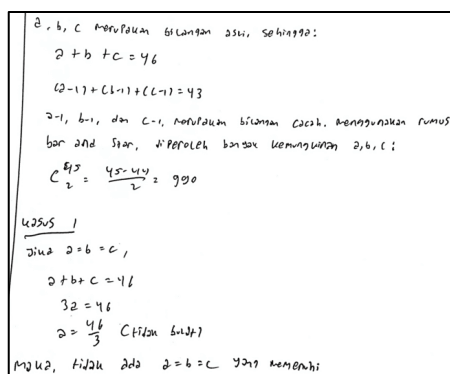 a, b, c merupakan bilangan asli, sehingga:
a + b + c = 46
(a-1) + (b-1) + (c-1) = 43
a-1, b-1, dan c-1, merupakan bilangan cacah. menggunakan rumus
bar and star, diperoleh banyak kemungkinan a, b, c :
C^{45}_{2} = \frac{45 \cdot 44}{2} = 990
Kasus 1
Jika a = b = c,
a + b + c = 46
3a = 46
a = \frac{46}{3} (tidak bulat)
Maka, tidak ada a = b = c yang memenuhi